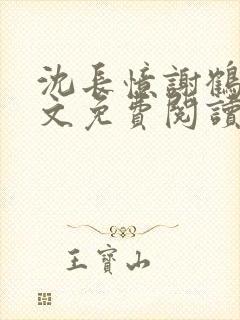 沈長憶謝鶴
文免費閱讀
王寶山